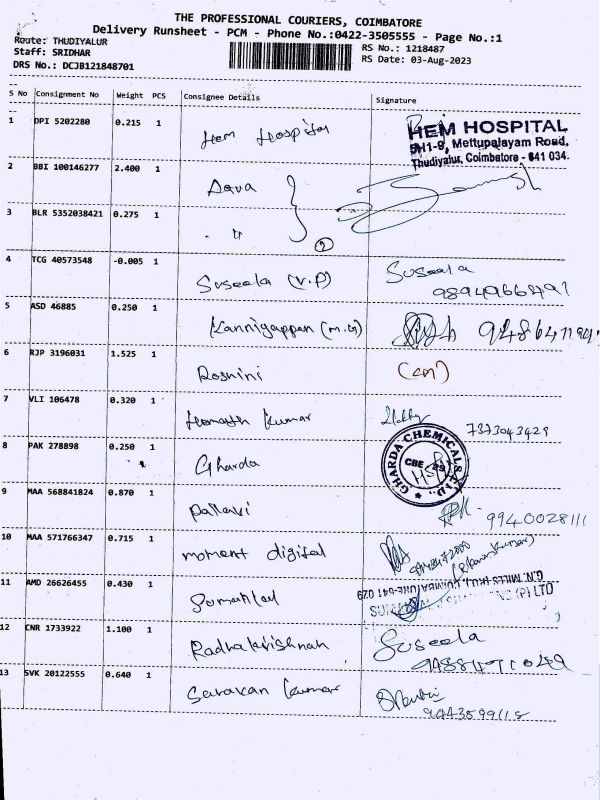 THE PROFESSIONAL COURIERS, COIMBATORE
Delivery Runsheet - PCM - Phone No.:0422-3505555 - Page No.:1
Route: THUDIYALUR
Staff: SRIDHAR
DRS No.: DCJB121848701
RS No.: 1218487
RS Date: 03-Aug-2023
S No Consignment No Weight PCS Consignee Details Signature
1 DPI 5202280 0.215 1 Hem Hospital
HEM HOSPITAL
Mettupalayam Road,
Thudiyalur, Coimbatore - 641 034.
2 BBI 100146277 2.400 1
3 BLR 5352038421 0.275 1 "
2
4 TCG 40573548 -0.005 1 Suseela (V.P) Suseela
5 ASD 46885 0.250 1 Kannigappan (m.G)
6 RJP 3196031 1.525 1 Roshini
7 VLI 106478 0.320 1 Hemath Kumar 7373043429
8 PAK 278898 0.250 1 Gharda
GHARDA CHEMICALS LTD.,
CBE 29
9 MAA 568841824 0.870 1 Pallavi 9940028111
10 MAA 571766347 0.715 1 moment digital
11 AMD 26626455 0.430 1
G.N. MILLS (PO), COIMBATORE-641 029
(P) LTD
12 CNR 1733922 1.100 1 Radhakrishnan Suseela
13 SVK 20122555 0.640 1 Saravan Kumar